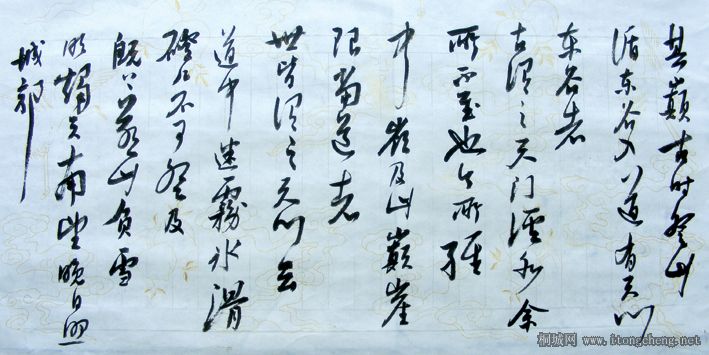 其巔古时登山
循东谷入道有天门
东谷者
古谓之天门溪水余
所不至也今所经
中嶺及山巔崖
限当道者
世皆谓之天门云
道中迷霧冰滑
磴几不可登及
既上苍山负雪
明燭天南望晚日照
城郭
桐城网 / www.itongcheng.net